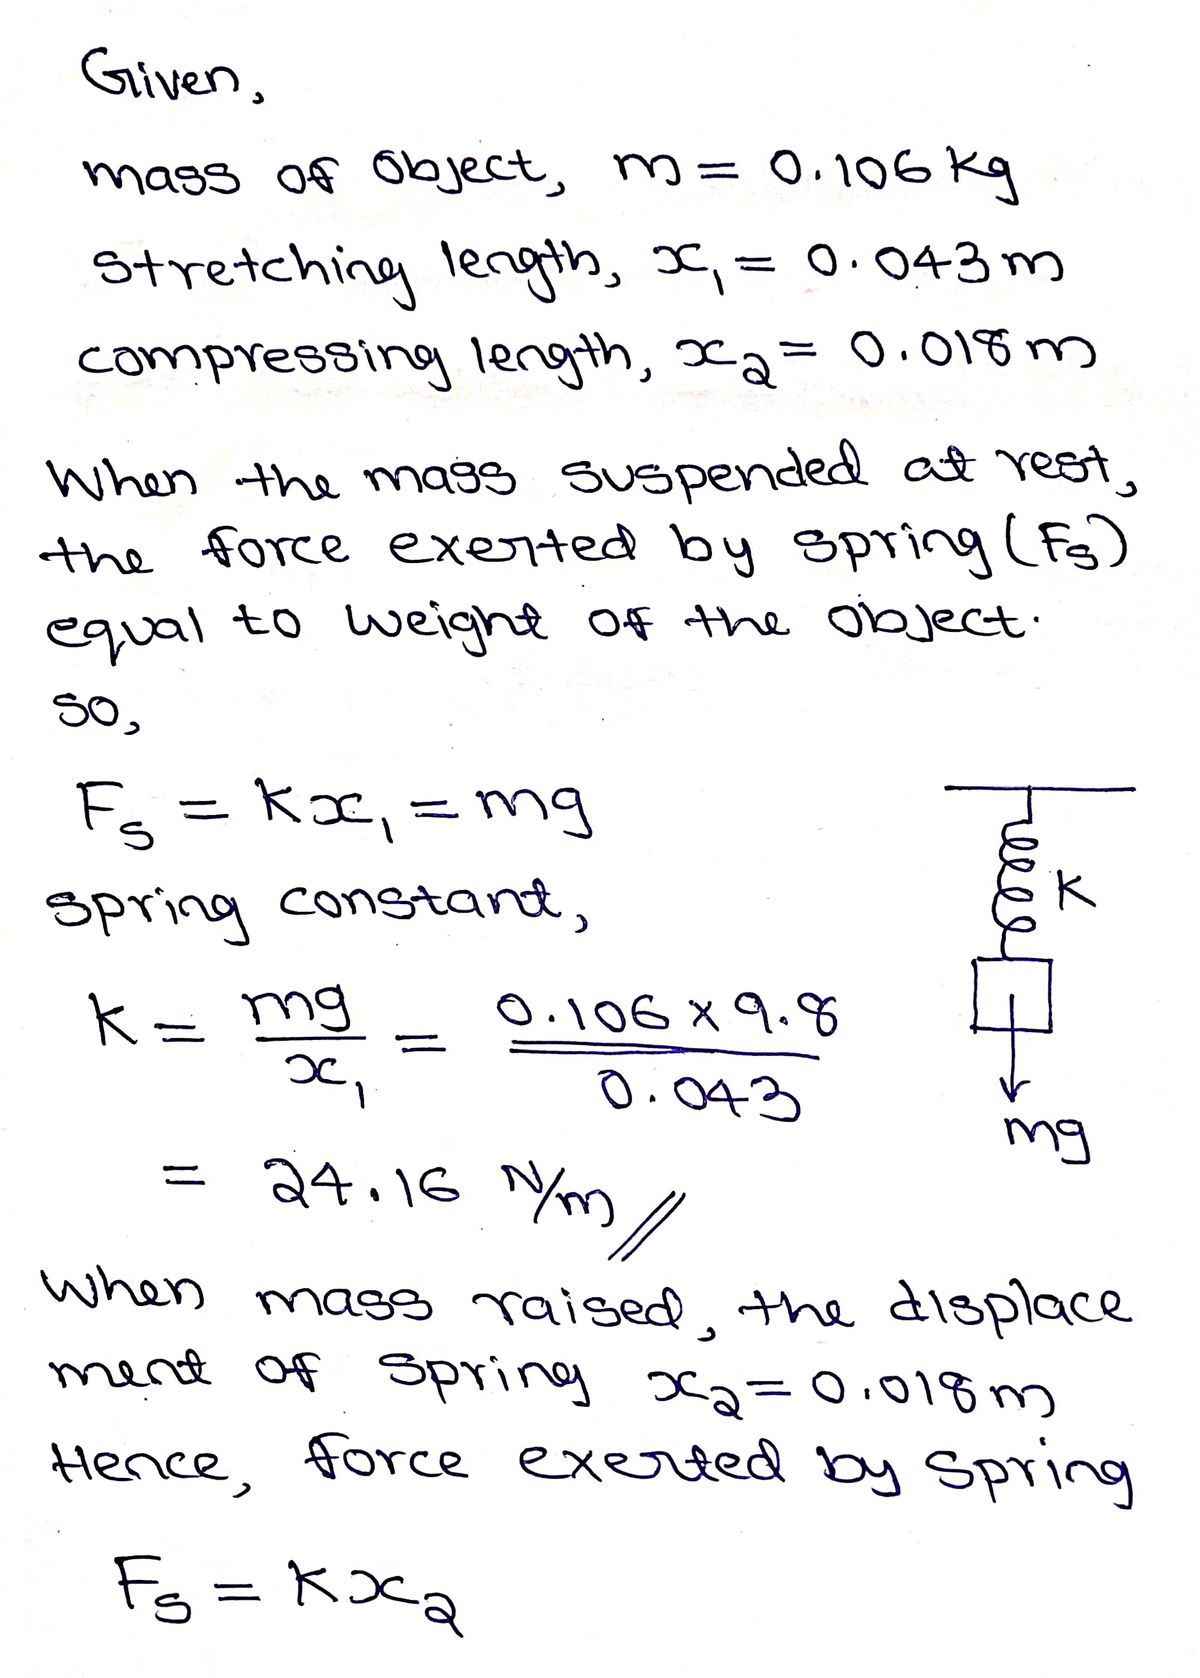 Given,
mass of object, m = 0.106 kg
stretching length, x₁ = 0.043 m
compressing length, x₂ = 0.018 m
When the mass suspended at rest,
the force exerted by spring (Fs)
equal to weight of the object.
so,
Fs = kx₁ = mg
spring constant,
K
k = mg/x₁ = 0.106 × 9.8/0.043
mg
= 24.16 N/m //
When mass raised, the displace
ment of spring x₂ = 0.018 m
Hence, force exerted by spring
Fs = kx₂